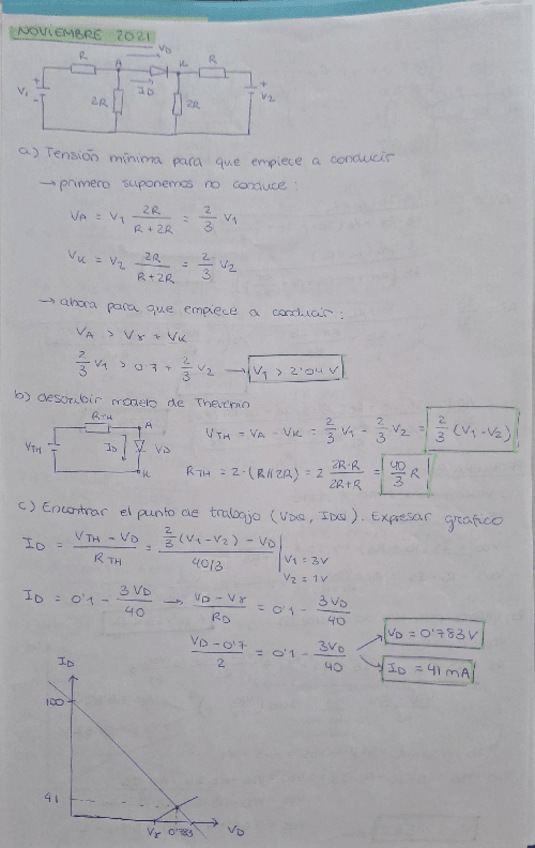 NOVIEMBRE 2021
VD
R A K R
+ ID +
V1 2R 2R V2
-
a) Tensión mínima para que empiece a conducir
→ primero suponemos no conduce:
VA = V1 2R/(R + 2R) = 2/3 V1
VK = V2 2R/(R + 2R) = 2/3 V2
→ ahora para que empiece a conducir:
VA > Vγ + VK
2/3 V1 > 0'7 + 2/3 V2 → V1 > 2'04 V
b) describir modelo de Thevenin
RTH A
VTH ID VD
K
VTH = VA - VK = 2/3 V1 - 2/3 V2 = 2/3 (V1 - V2)
RTH = 2·(R//2R) = 2 2R·R/(2R+R) = 40/3 R
c) Encontrar el punto de trabajo (VDQ, IDQ). Expresar grafico
ID = (VTH - VD)/RTH = (2/3 (V1 - V2) - VD)/(40/3) | V1 = 3V V2 = 1V
ID = 0'1 - 3VD/40 → (VD - Vγ)/RD = 0'1 - 3VD/40
(VD - 0'7)/2 = 0'1 - 3VD/40
VD = 0'783 V
ID = 41 mA
ID
100
41
Vγ 0'783 VD